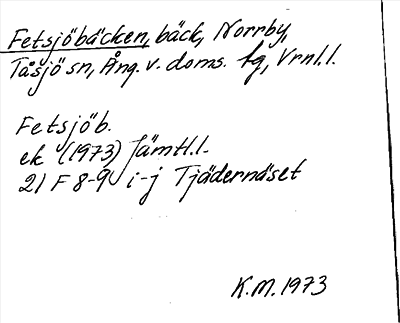 Fetsjöbäcken, bäck, Norrby,
Tåsjö sn, Ång. v. doms. hg, Vrnl.l.
Fetsjöb.
ek (1973) Jämtl.l.
21 F 8-9 i-j Tjädernäset
K.M. 1973